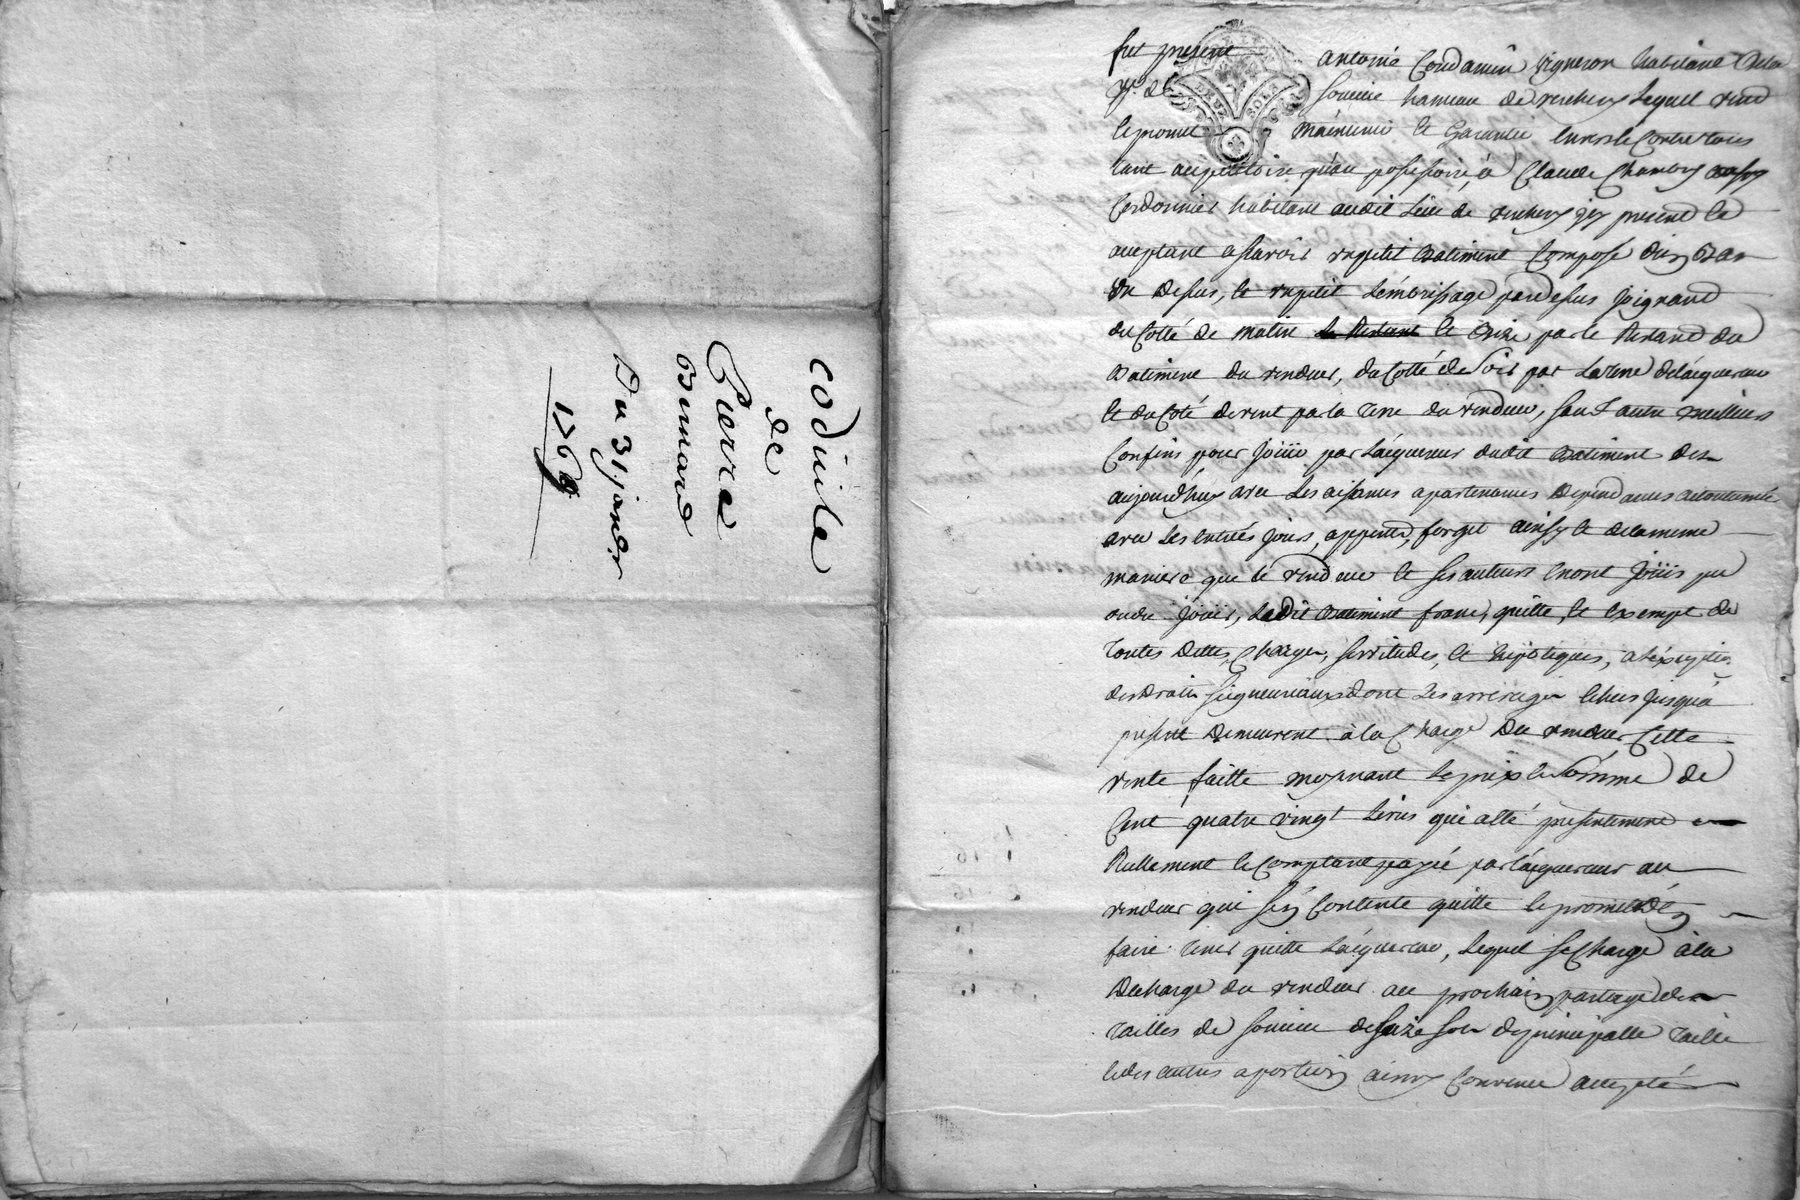 codicile
de
Pierre
Bernard
Du 31 janv.r
1769
fut present antoine Condamin vigneron habitant de la
p.sse de soucieu hameau de verchery lequel vend
et promet maintenir et Garantir envers et contre tous
tant au petitoire qu'au possessoire, à Claude Chambry
Cordonnier habitant audit lieu de verchery icy present et
acceptant a sçavoir un petit Batiment Composé d'un Bas
un dessus, et un petit lembrissage par dessus joignant
du Cotté de matin et Bize par le Restant du
Batiment du vendeur, du Cotté de soir par la terre de l'acquereur
et du Coté de vent par la terre du vendeur, sauf autre meilleurs
Confins pour joüir par l'acquereur dudit Batiment des
aujourd'huy avec les aisances apartenances dependances accoutumée
avec les entrées jours, appends, forget ainsy et de la meme
maniere que le vendeur et ses auteurs en ont joüis pu
ou du joüir, ledit Batiment franc, quitte, et exempt de
toutes dettes, Charges, servitudes, et hipotèques, a lexception
des droits seigneuriaux dont les arrerages echus jusqu'a
present demeurent à la Charge du vendeur, Cette
vente faitte moyenant le prix et somme de
Cent quatre vingt livres qui a été presentement
Reellement et comptant payée par lacquereur au
vendeur qui s'en Contente quitte et promet de
faire tenir quitte lacquereur, lequel se Charge à la
decharge du vendeur au prochain partage des
tailles de soucieu de seize sols de principalle taille
et des autres a portion ainsy Convenu accepté